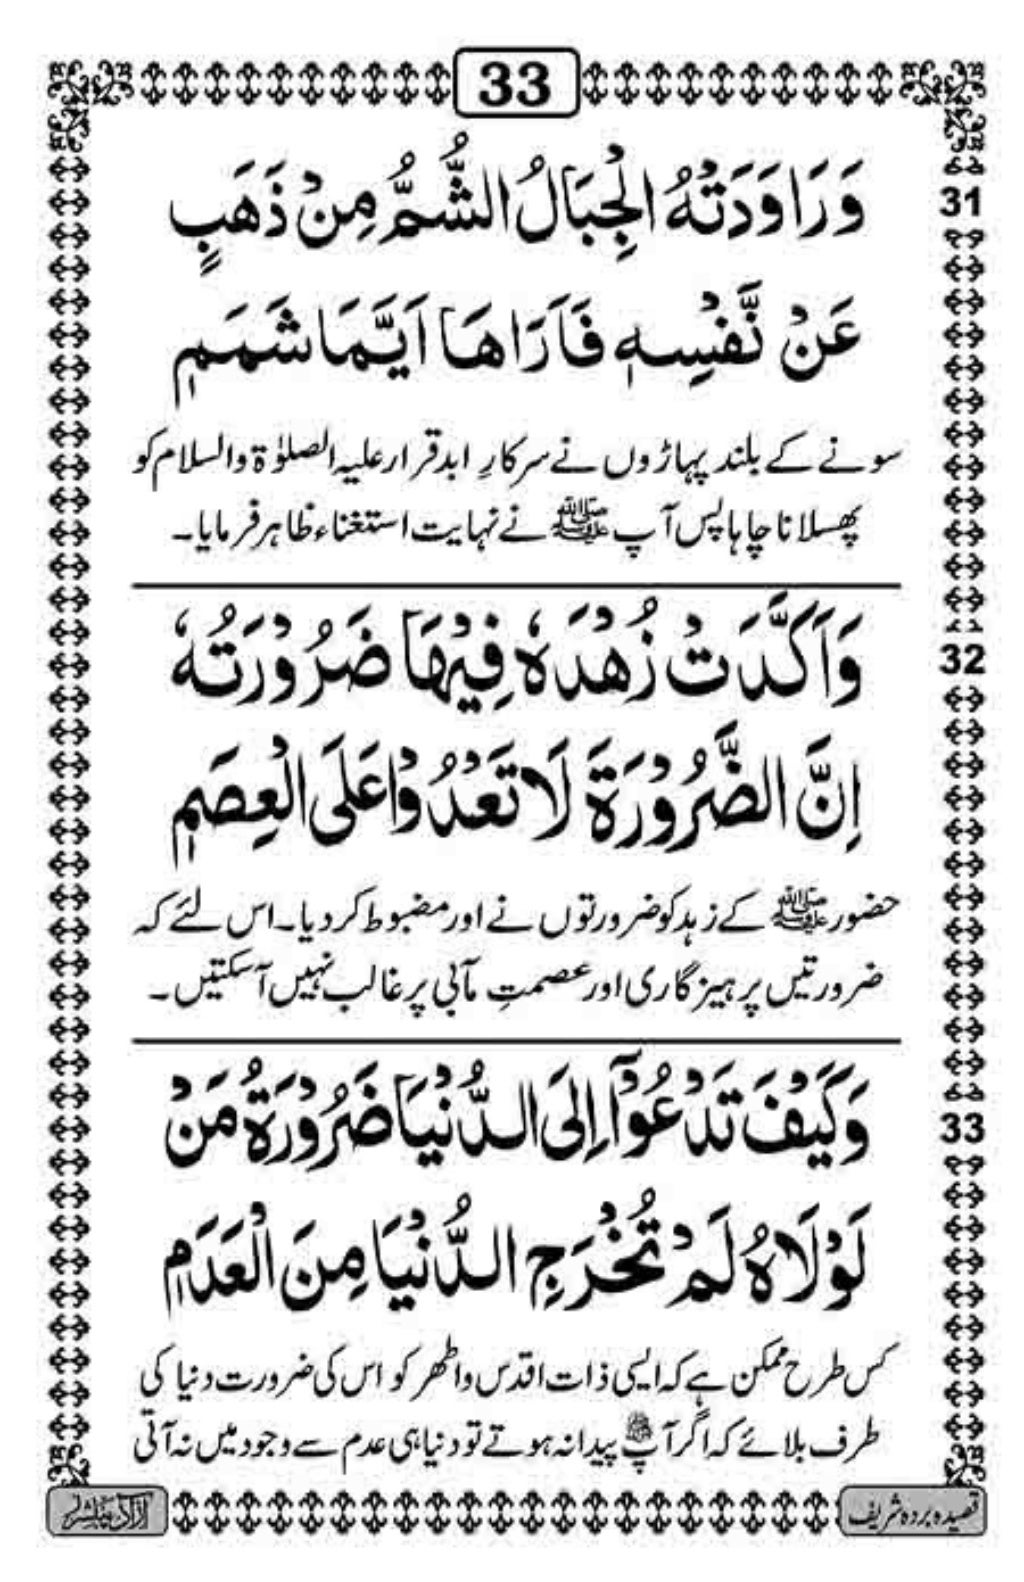 33
31
وَرَاوَدَتْهُ الْجِبَالُ الشُّمُّ مِنْ ذَهَبٍ
عَنْ نَّفْسِهٖ فَاَرَاهَا اَيَّمَا شَمَمٖ
سونے کے بلند پہاڑوں نے سرکارِ ابد قرار علیہ الصلوٰۃ والسلام کو
پھسلانا چاہا پس آپ ﷺ نے نہایت استغناء ظاہر فرمایا۔
32
وَاَكَّدَتْ زُهْدَهٗ فِيْهَا ضَرُوْرَتُهٗ
اِنَّ الضَّرُوْرَةَ لَا تَعْدُوْا عَلَى الْعِصَمٖ
حضور ﷺ کے زہد کو ضرورتوں نے اور مضبوط کر دیا۔ اس لئے کہ
ضرورتیں پرہیزگاری اور عصمتِ مآبی پر غالب نہیں آسکتیں۔
33
وَكَيْفَ تَدْعُوْٓا اِلَى الدُّنْيَا ضَرُوْرَةُ مَنْ
لَوْلَاهُ لَمْ تُخْرَجِ الدُّنْيَا مِنَ الْعَدَمٖ
کس طرح ممکن ہے کہ ایسی ذات اقدس واطھر کو اس کی ضرورت دنیا کی
طرف بلائے کہ اگر آپ ﷺ پیدا نہ ہوتے تو دنیا ہی عدم سے وجود میں نہ آتی
قصیدہ بردہ شریف